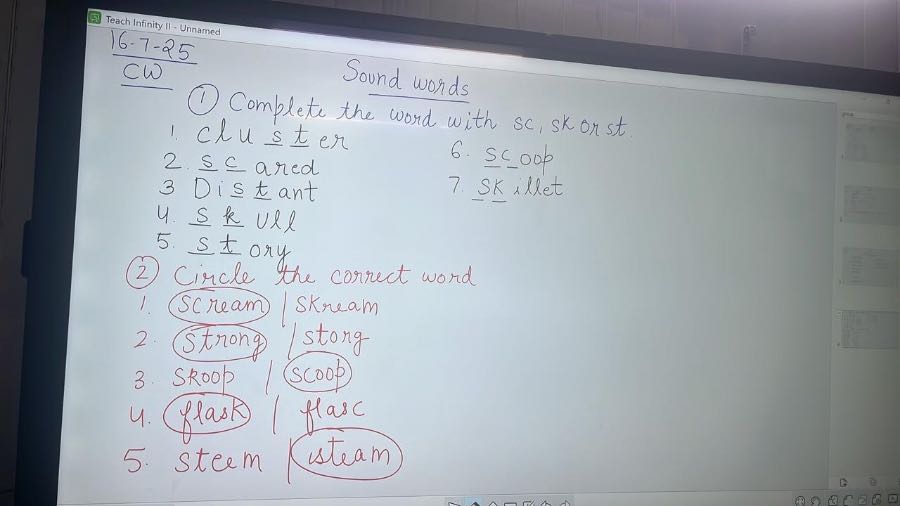 Teach Infinity II - Unnamed
16-7-25
CW
Sound words
① Complete the word with sc, sk or st.
1. cluster
2. scared
3 Distant
4. skull
5. story
6. scoop
7. skillet
② Circle the correct word
1. scream / skream
2. strong / stong
3. skoop / scoop
4. flask / flasc
5. steem / steam